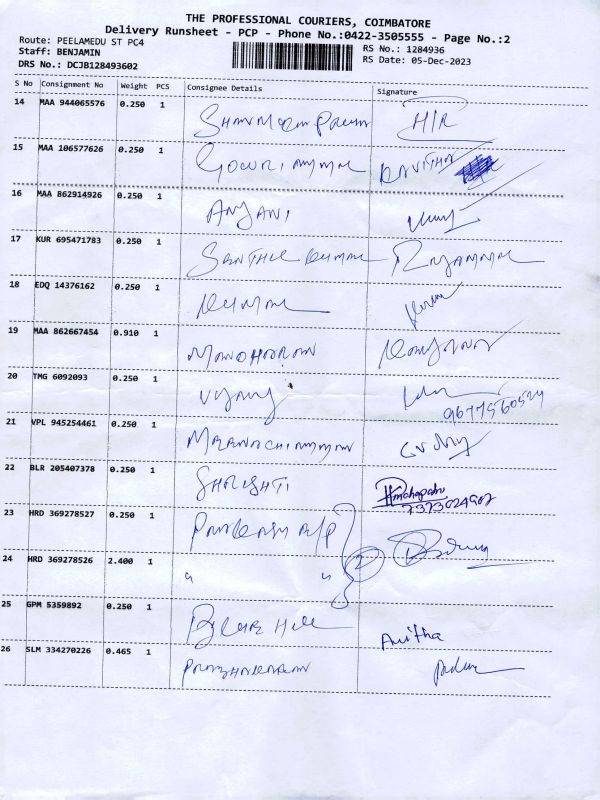 THE PROFESSIONAL COURIERS, COIMBATORE
Delivery Runsheet - PCP - Phone No.:0422-3505555 - Page No.:2
Route: PEELAMEDU ST PC4
RS No.: 1284936
Staff: BENJAMIN
RS Date: 05-Dec-2023
DRS No.: DCJB128493602
S No Consignment No Weight PCS Consignee Details Signature
14 MAA 944065576 0.250 1 H/R
15 MAA 106577626 0.250 1
16 MAA 862914926 0.250 1
17 KUR 695471783 0.250 1
18 EDQ 14376162 0.250 1 KUMAR
19 MAA 862667454 0.910 1 MANOHARAN
20 TMG 6092093 0.250 1
9677560524
21 VPL 945254461 0.250 1
22 BLR 205407378 0.250 1
7373024902
23 HRD 369278527 0.250 1
24 HRD 369278526 2.400 1 " " 2
25 GPM 5359892 0.250 1 Anitha
26 SLM 334270226 0.465 1